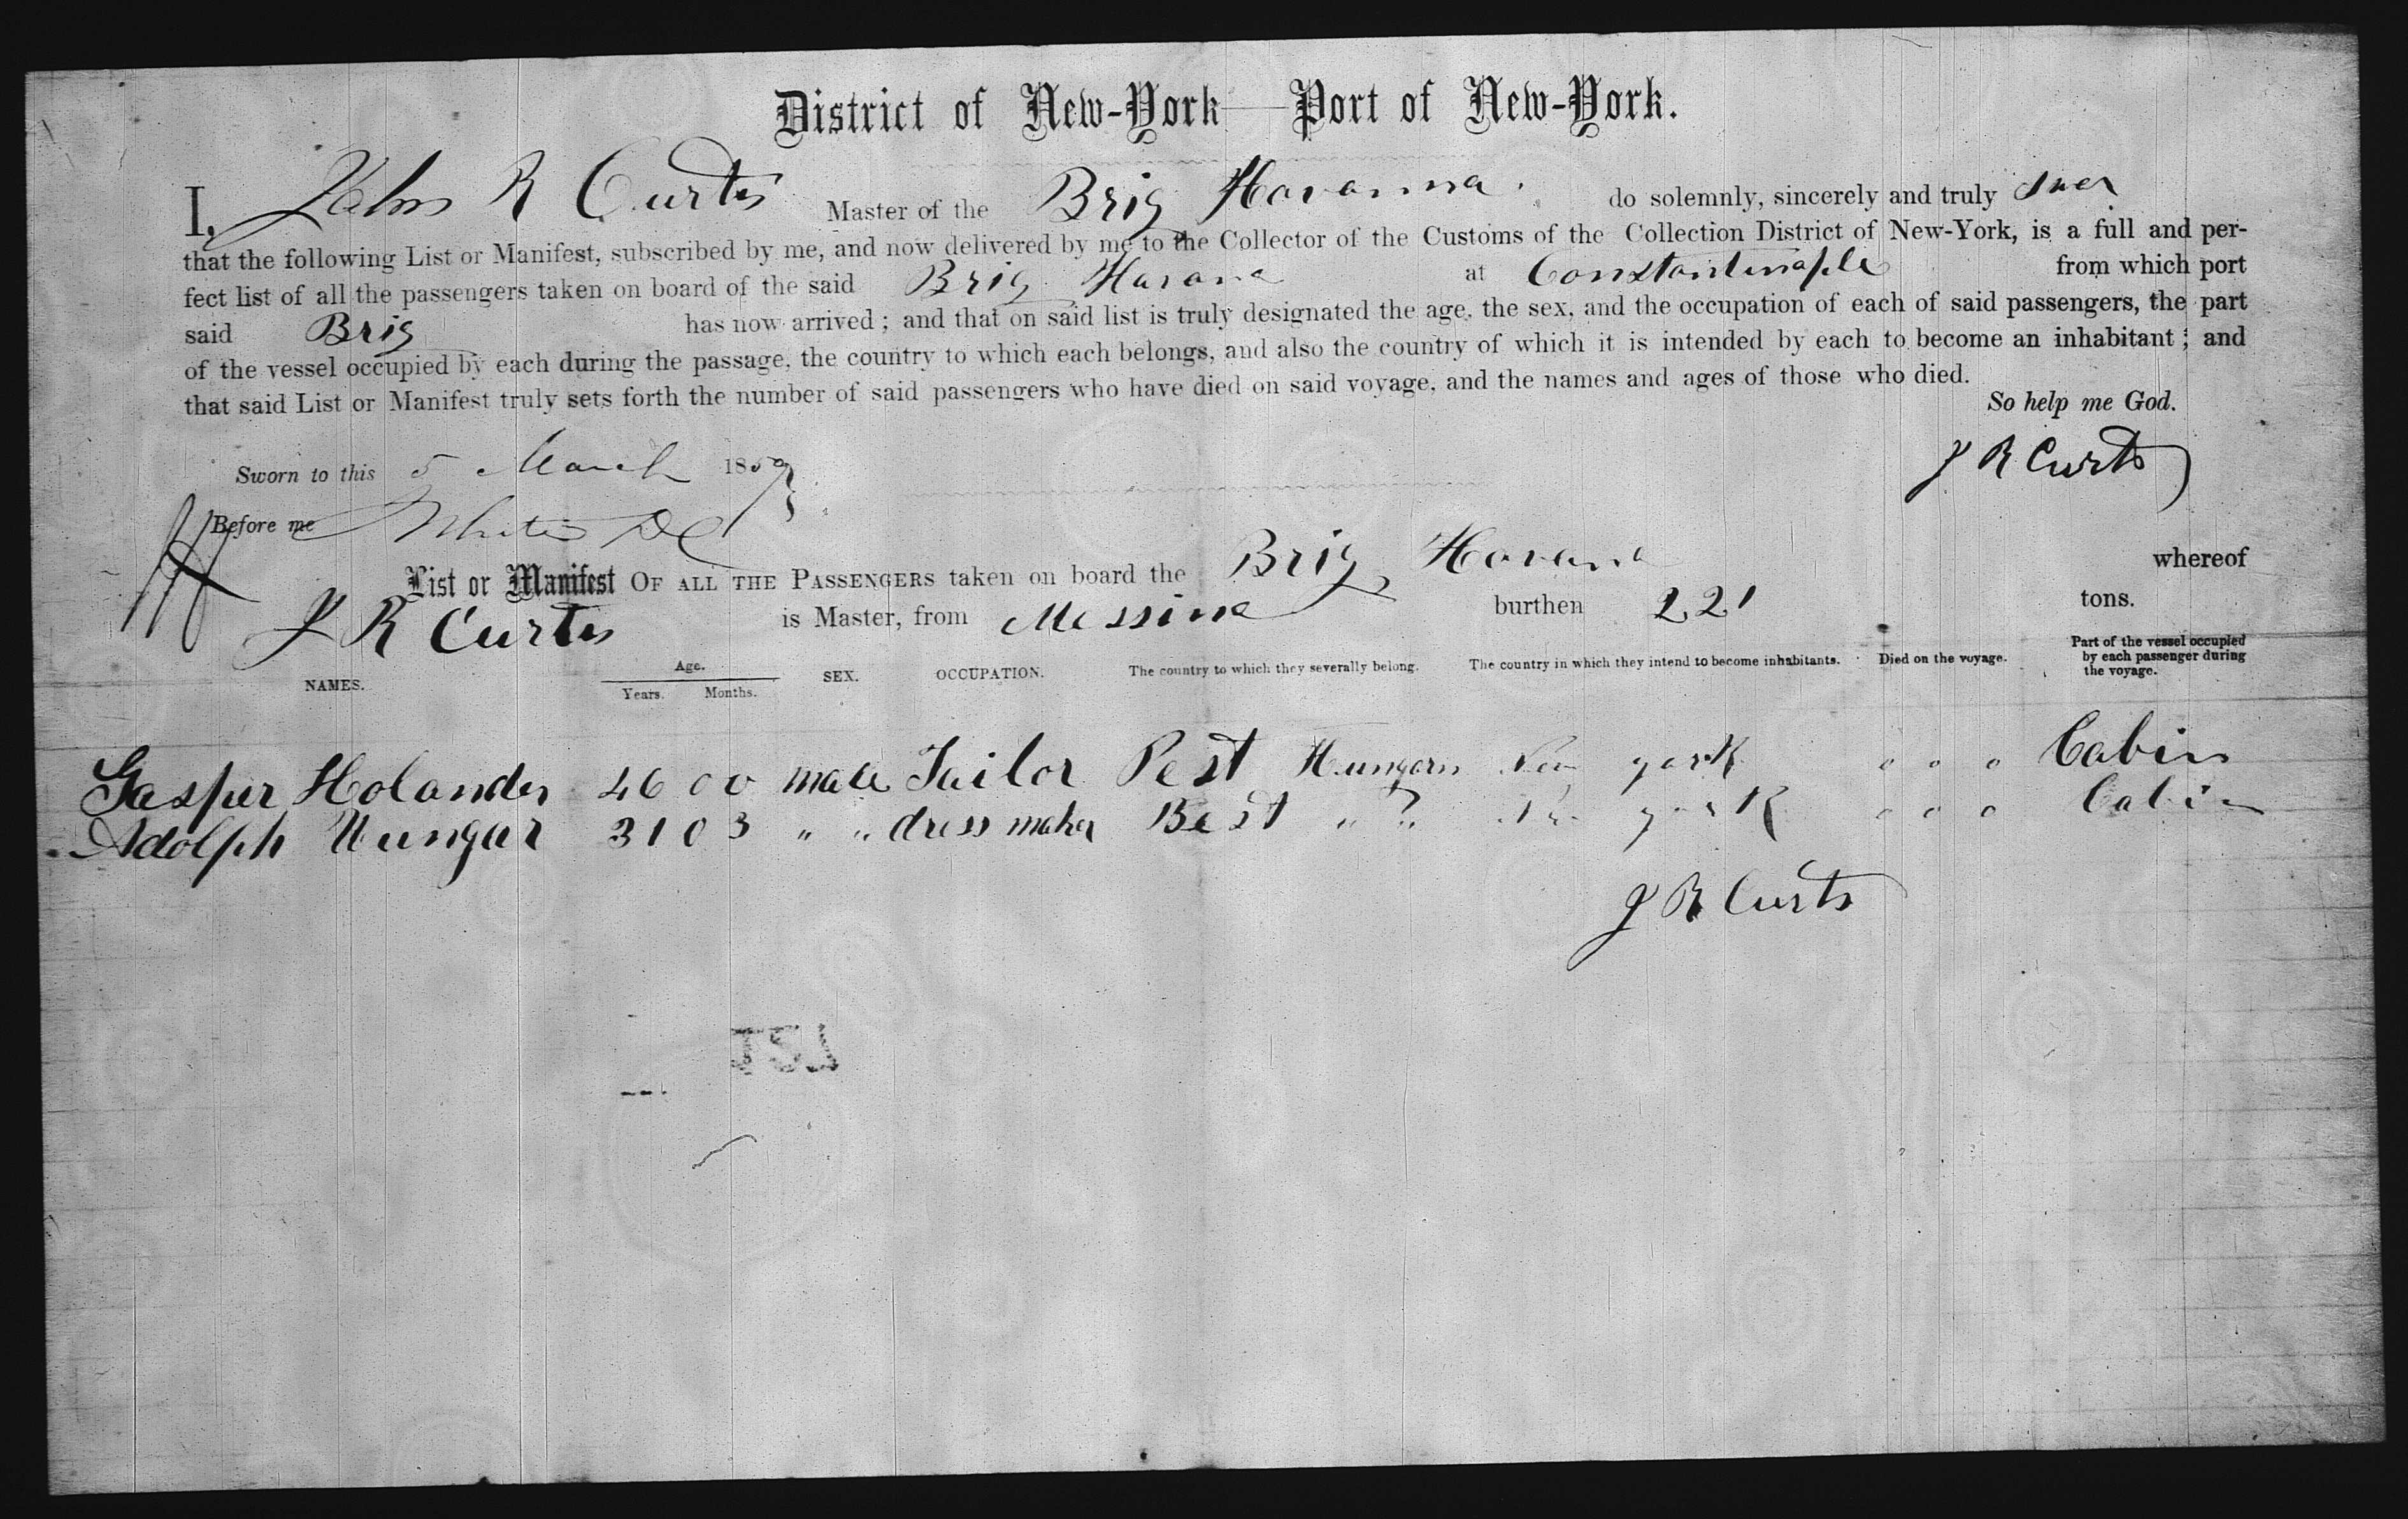 District of New-York Port of New-York.
I, John R Curtis Master of the Brig Havanna. do solemnly, sincerely and truly swer
that the following List or Manifest, subscribed by me, and now delivered by me to the Collector of the Customs of the Collection District of New-York, is a full and per-
fect list of all the passengers taken on board of the said Brig Havana at Constantinaple from which port
said Brig has now arrived; and that on said list is truly designated the age, the sex, and the occupation of each of said passengers, the part
of the vessel occupied by each during the passage, the country to which each belongs, and also the country of which it is intended by each to become an inhabitant; and
that said List or Manifest truly sets forth the number of said passengers who have died on said voyage, and the names and ages of those who died.
So help me God.
J R Curtis
Sworn to this 5 March 1859
Before me
List or Manifest OF ALL THE PASSENGERS taken on board the Brig Havana whereof
J R Curtis is Master, from Messina burthen 221 tons.
NAMES. Age. Years. Months. SEX. OCCUPATION. The country to which they severally belong. The country in which they intend to become inhabitants. Died on the voyage. Part of the vessel occupied by each passenger during the voyage.
Gasper Holander 46 00 male Tailor Pest Hungarn New york o o o Cabin
Adolph Wungar 31 03 " " dress maker Best " " New york o o o Cabin
J R Curtis